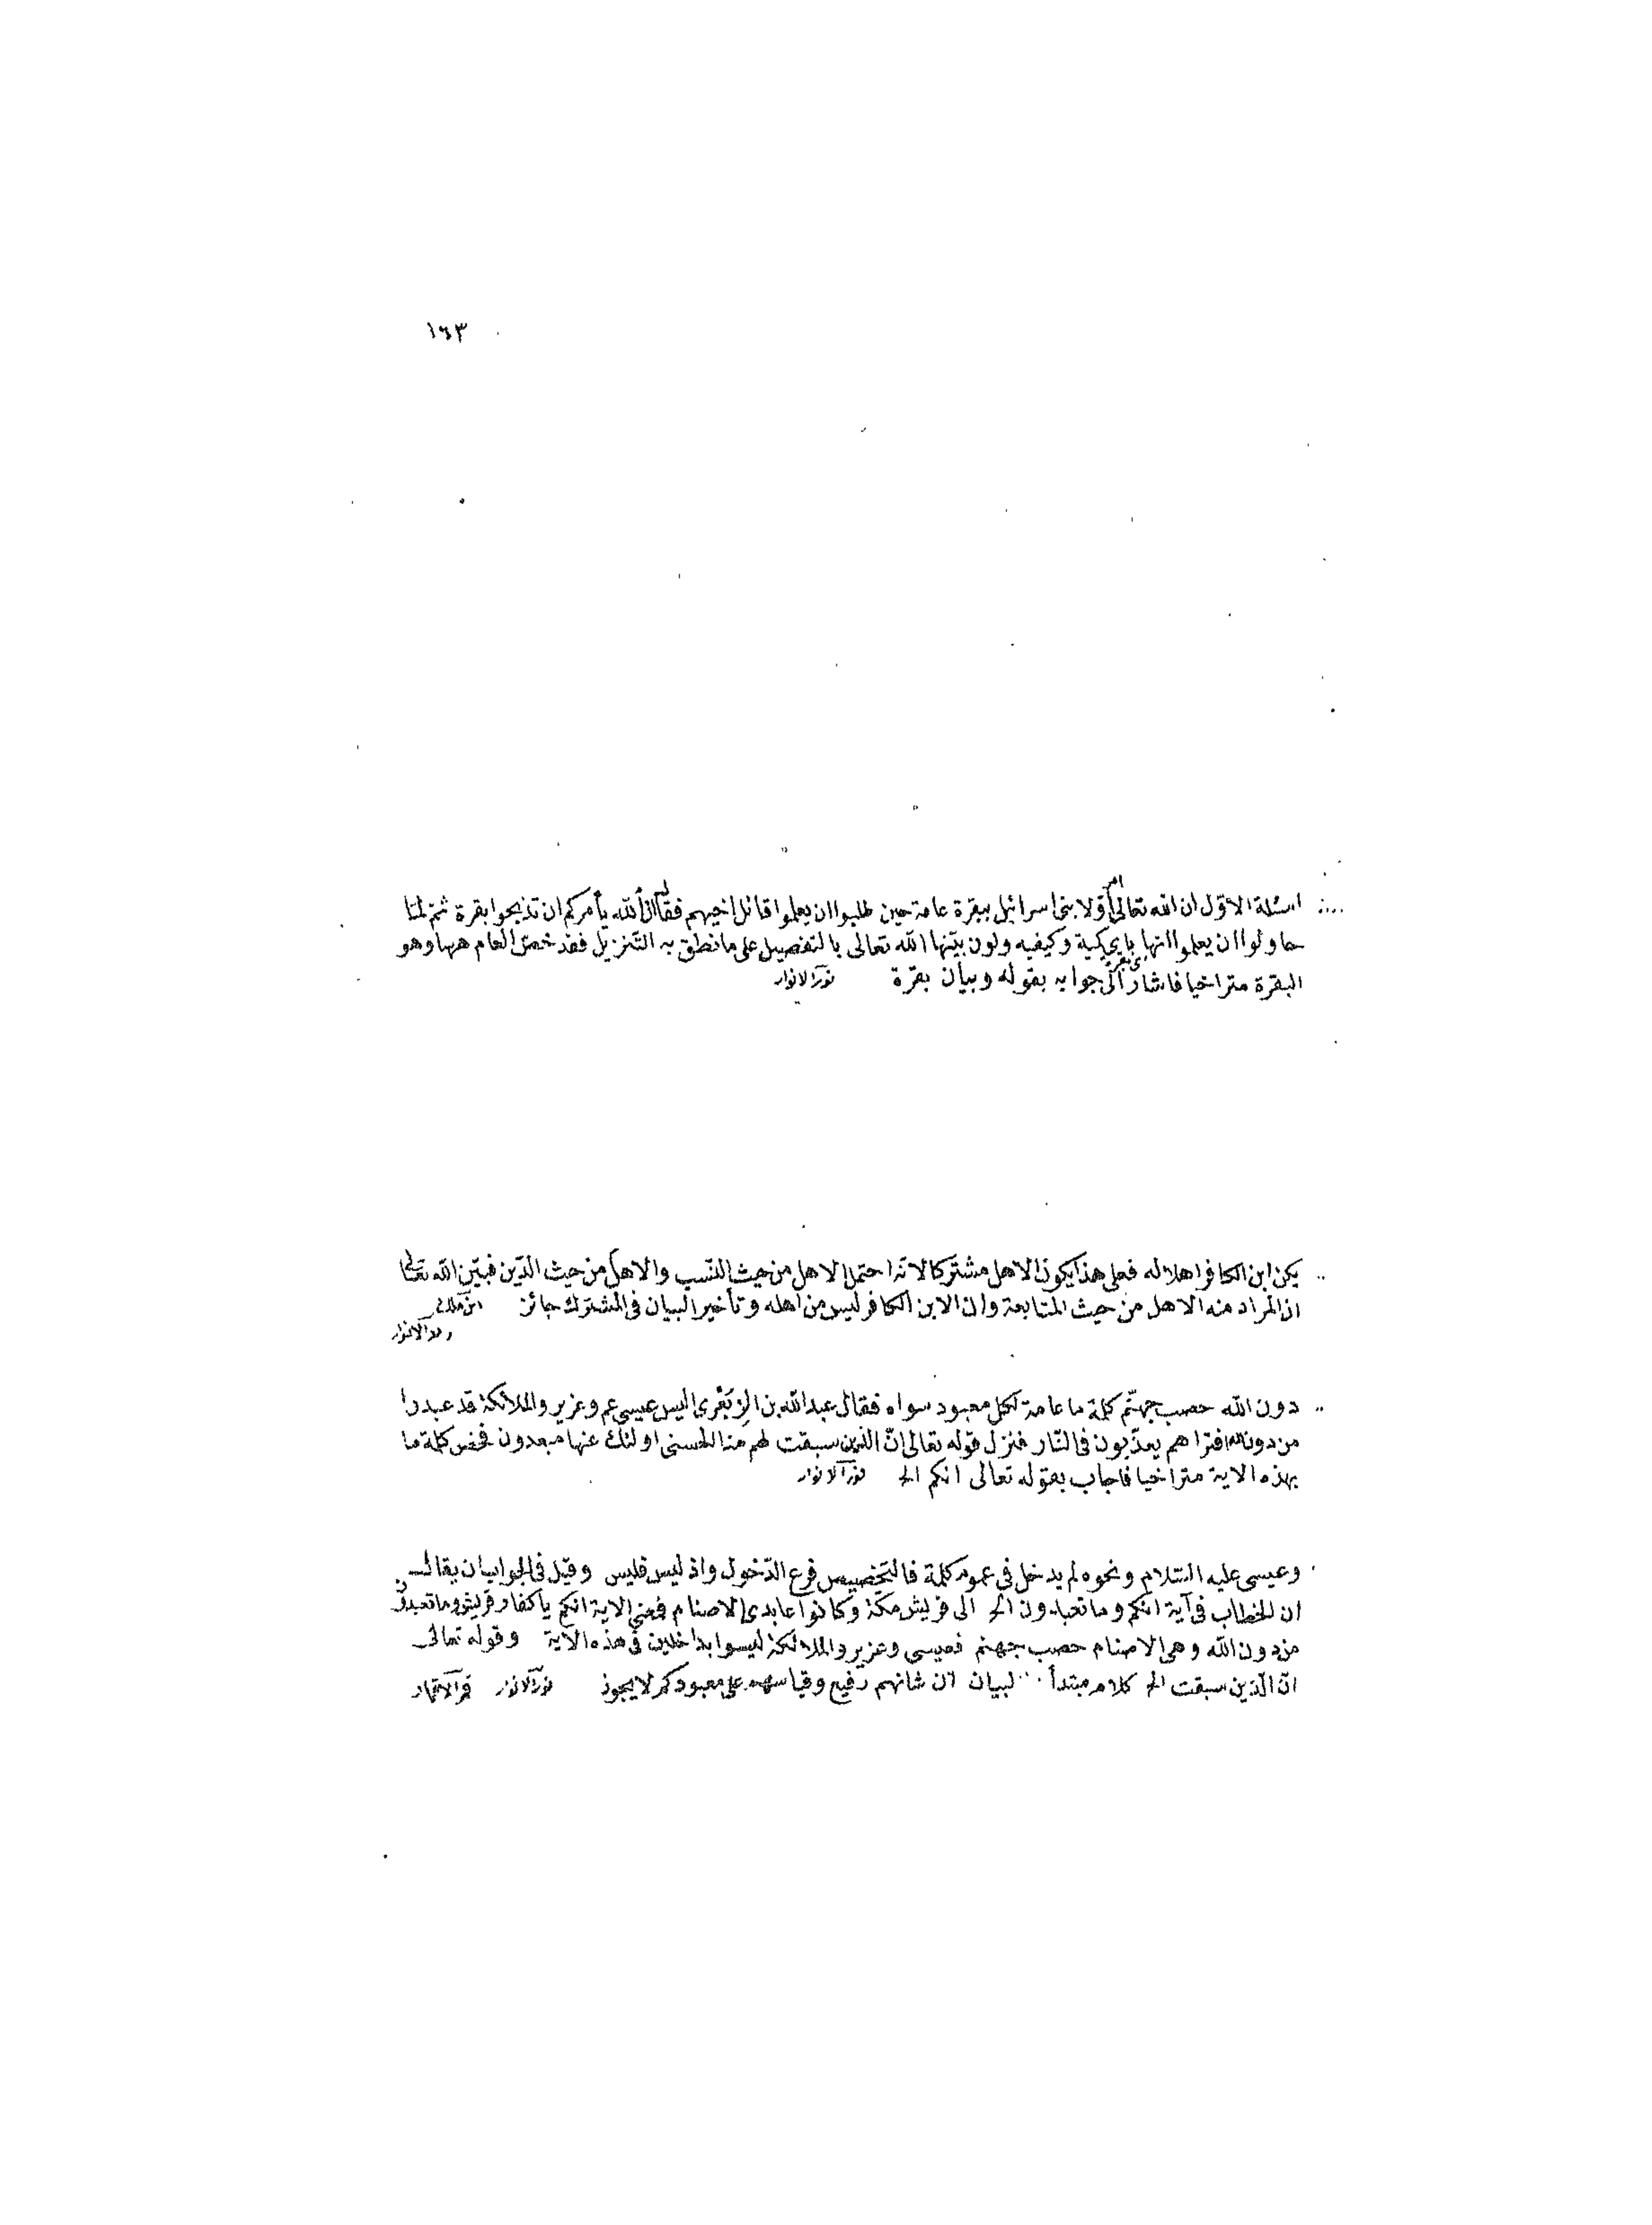 ١٦٣
اسئلة الاوّل ان الله تعالى امر اوّلا بنى اسرائيل ببقرة عامة حين طلبوا ان يعلموا قاتل اخيهم فقال ان الله يأمركم ان تذبحوا بقرة ثمّ لمّا
حاولوا ان يعلموا انها باى كمية وكيفيه ولون بيّنها الله تعالى بالتفصيل على ما نطق به التنزيل فقد خصّ العام ههنا وهو
البقرة متراخيا فاشار الى جوابه بقوله وبيان بقرة نور الانوار
يكن ابن الكافر اهلا له فعلى هذا يكون الاهل مشتركا لانّه احتمل الاهل من حيث النّسب والاهل من حيث الدّين فبيّن الله تعالى
ان المراد منه الاهل من حيث المتابعة وان الابن الكافر ليس من اهله وتأخير البيان فى المشترك جائز ابن ملك
نور الانوار
دون الله حصب جهنّم كلمة ما عامة لكل معبود سواه فقال عبد الله بن الزِبَعْرى اليس عيسى عم وعزير والملائكة قد عبدوا
من دون الله افتراهم يعذّبون فى النّار فنزل قوله تعالى انّ الذين سبقت لهم منا الحسنى اولئك عنها مبعدون فخص كلمة ما
بهذه الاية متراخيا فاجاب بقوله تعالى انكم الخ نور الانوار
وعيسى عليه السّلام ونحوه لم يدخل فى عموم كلمة فالتخصيص فرع الدّخول واذ ليس فليس وقيل فى الجواب ان يقال
ان الخطاب فى آية انكم وما تعبدون الخ الى قريش مكّة وكانوا عابدى الاصنام فمعنى الاية انكم يا كفار قريش وما تعبدون
من دون الله وهى الاصنام حصب جهنم فعيسى وعزير والملائكة ليسوا بداخلين فى هذه الاية وقوله تعالى
انّ الّذين سبقت الخ كلام مبتدأ لبيان انّ شانهم رفيع وقياسهم على معبودكم لا يجوز نور الانوار قمر الاقمار